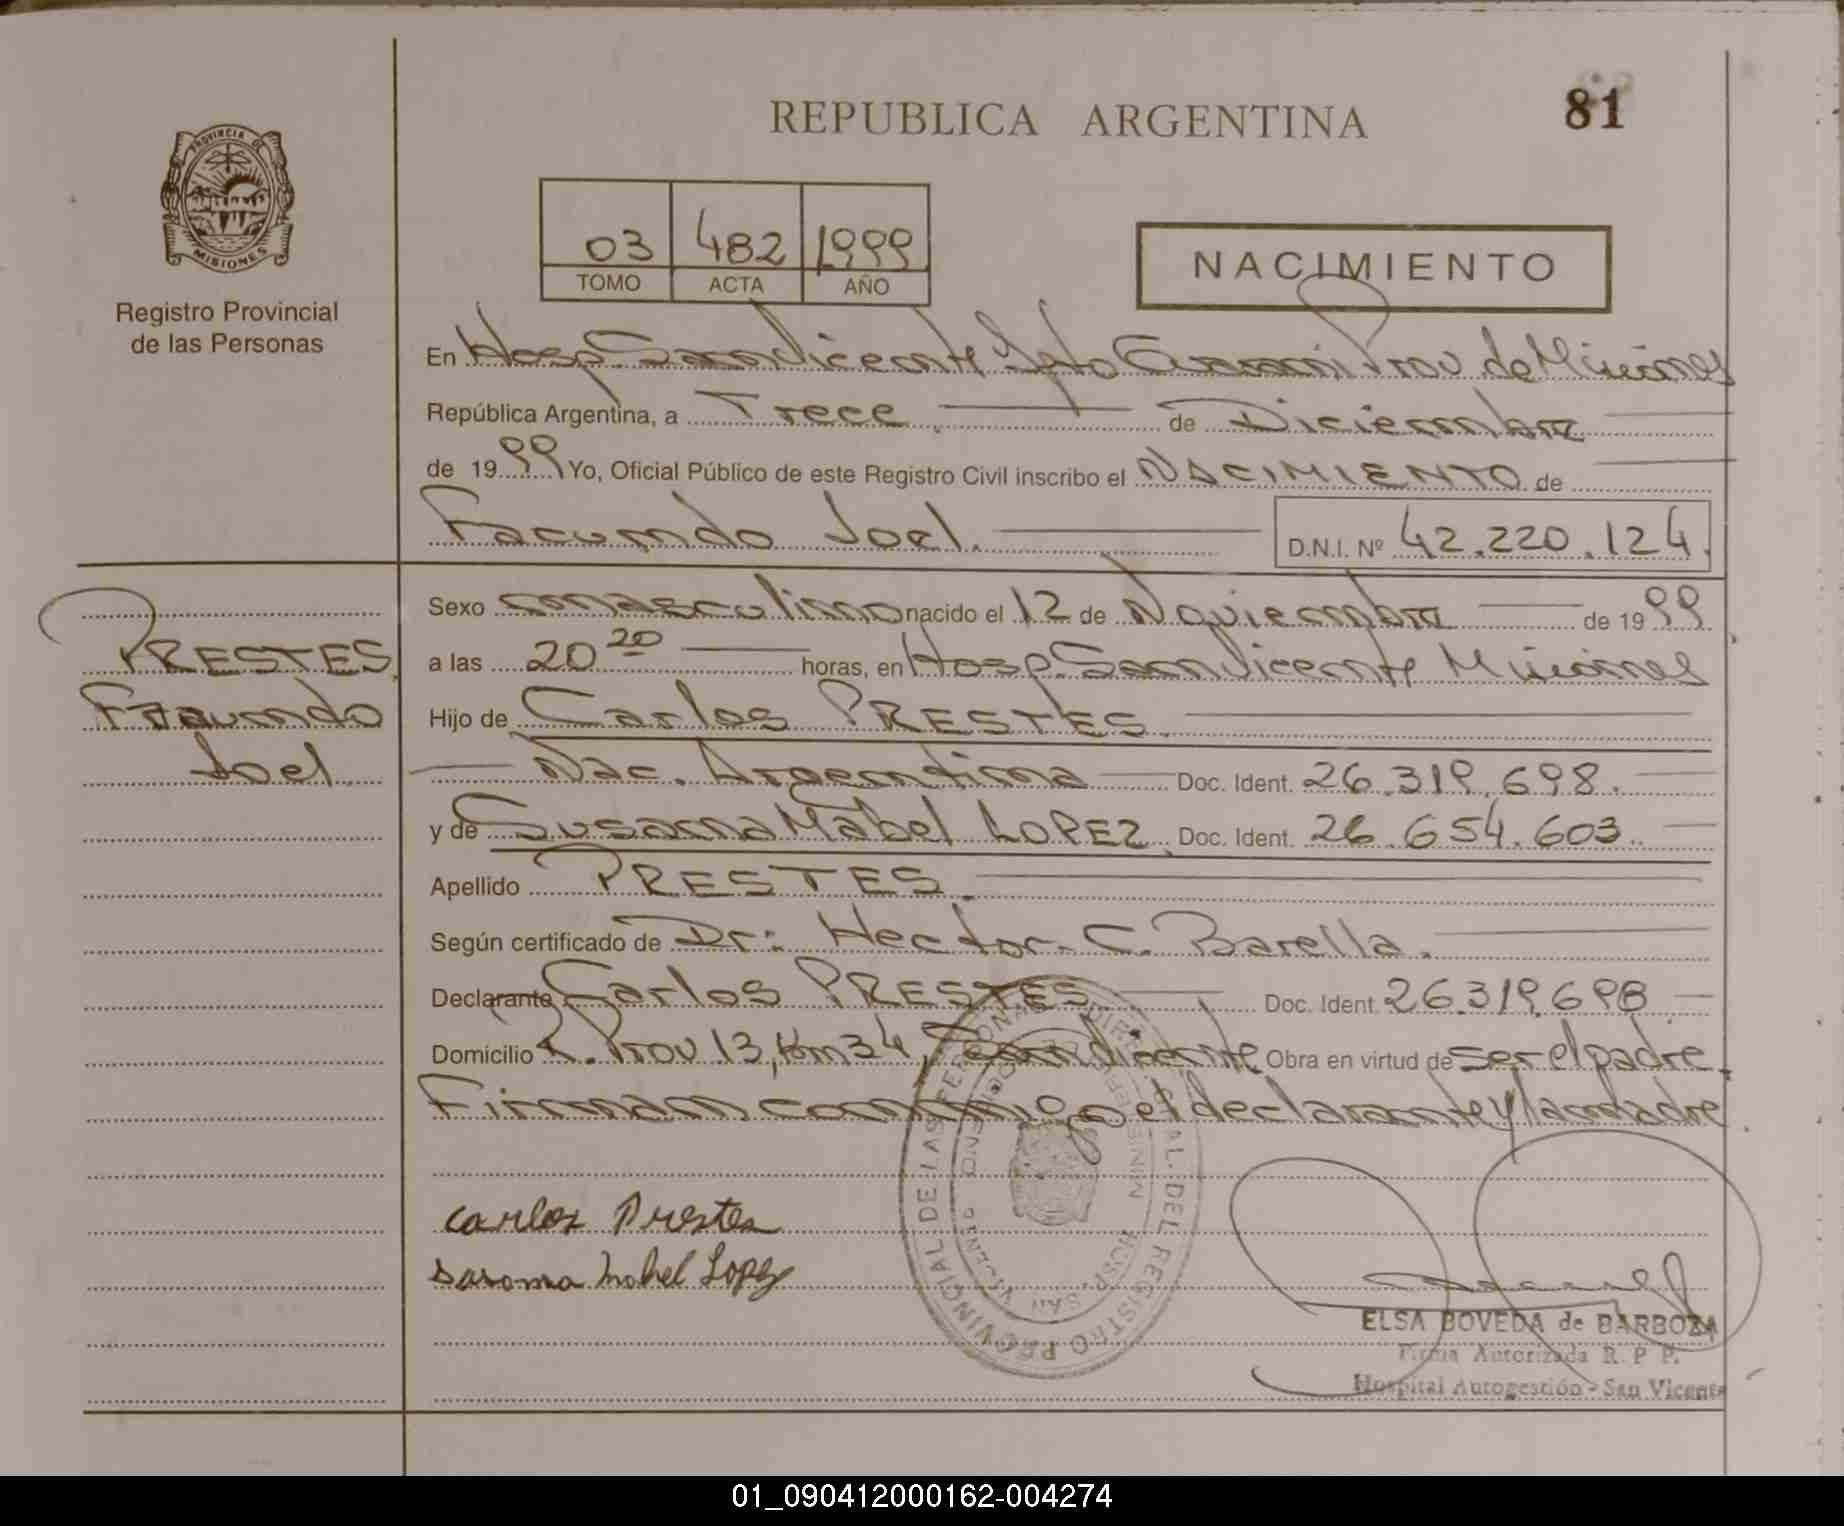 REPUBLICA ARGENTINA
81
PROVINCIA DE
MISIONES
Registro Provincial
de las Personas
03 482 1999
TOMO ACTA AÑO
NACIMIENTO
En Hosp. San Vicente Dpto Guarani Prov de Misiones
República Argentina, a Trece de Diciembre
de 1999 Yo, Oficial Público de este Registro Civil inscribo el NACIMIENTO de
Facundo Joel.
D.N.I. Nº 42.220.124.
PRESTES
Facundo
Joel
Sexo masculino nacido el 12 de Noviembre de 1999
a las 20 20 horas, en Hosp. San Vicente Misiones
Hijo de Carlos PRESTES.
Nac. Argentina Doc. Ident. 26.319.698.
y de Susana Mabel LOPEZ. Doc. Ident. 26.654.603.
Apellido PRESTES.
Según certificado de Dr: Hector. C. Barella.
Declarante Carlos PRESTES Doc. Ident. 26.319.698
Domicilio R. Prov 13, Km 34, San Vicente Obra en virtud de ser el padre.
Firman conmigo el declarante y la madre.
Carlos Prestes
Susana Mabel Lopez
PROVINCIAL DE LAS PERSONAS
DEL REGISTRO
HOSP. SAN VICENTE
ELSA BOVEDA de BARBOZA
Firma Autorizada R. P. P.
Hospital Autogestión - San Vicente
01_090412000162-004274